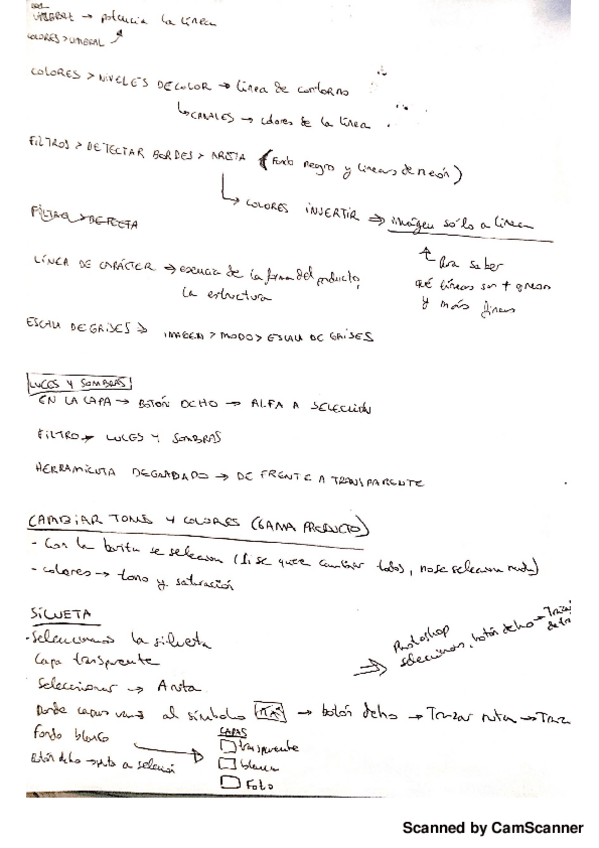 UMBRAL → potencia la línea
COLORES > UMBRAL
COLORES > NIVELES DE COLOR → línea de contorno
↳ CANALES → colores de la línea
FILTROS > DETECTAR BORDES > ARISTA (Fondo negro y líneas de neón)
↳ COLORES INVERTIR ⇒ imagen sólo a línea
FILTRO > DETECTA
↑ Para saber
LÍNEA DE CARÁCTER → esencia de la forma del producto,
qué líneas son + gruesas
la estructura
y más finas
ESCALA DE GRISES > IMAGEN > MODO > ESCALA DE GRISES
LUCES Y SOMBRAS
EN LA CAPA → BOTÓN DCHO → ALFA A SELECCIÓN
FILTRO → LUCES Y SOMBRAS
HERRAMIENTA DEGRADADO → DE FRENTE A TRANSPARENTE
CAMBIAR TONOS Y COLORES (GAMA PRODUCTO)
- Con la varita se selecciona (si se quiere cambiar todo, no se selecciona nada)
- colores → tono y saturación
SILUETA
- Seleccionamos la silueta
Photoshop
seleccionar, botón dcho →
Capa transparente
Seleccionar → A ruta
Donde capas vamos al símbolo → botón dcho → Trazar ruta →
Fondo blanco
CAPAS
transparente
Botón dcho → ruta a selección
blanca
Foto
Scanned by CamScanner